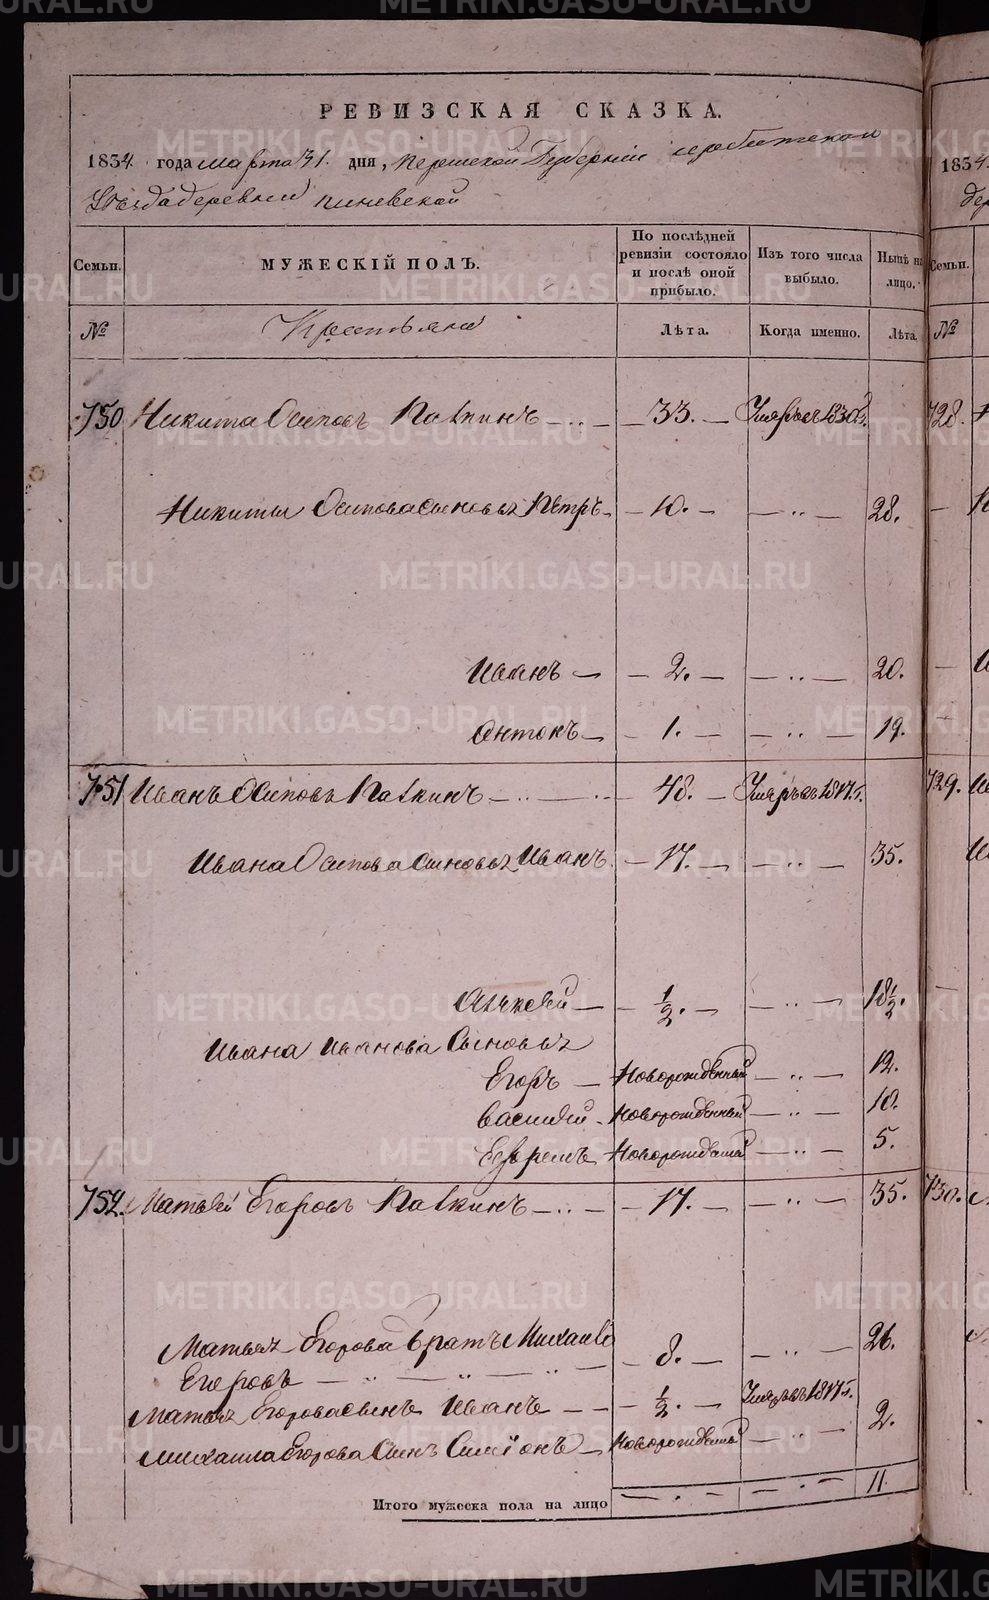 РЕВИЗСКАЯ СКАЗКА.
1834 года марта 31. дня, Пермской Губернии Ирбитской
Уезда деревни
Семьи. МУЖЕСКІЙ ПОЛЪ. По послѣдней ревизіи состояло и послѣ оной прибыло. Изъ того числа выбыло. Нынѣ на лицо.
№ Крестьяне Лѣта. Когда именно. Лѣта.
750 Никита Осиповъ 33. Умре въ 1830 г.
Никиты Осипова сыновья Петръ 10. 28.
Иванъ 2. 20.
Антонъ 1. 19.
751 Иванъ Осиповъ 48. Умре въ 1817 г.
Ивана Осипова сыновья Иванъ 17. 35.
Алексѣй ½. 18½.
Ивана Иванова Сыновья
Егоръ Новорожденный 12.
Василій Новорожденный 10.
Ефремъ Новорожденный 5.
752. Матвѣй Егоровъ 17. 35.
Матвѣя Егорова братъ Михайло 8. 26.
Егоровъ
Матвѣя Егорова сынъ Иванъ ½. Умре въ 1817 г.
Михаила Егорова Сынъ Симіонъ Новорожденный 2.
Итого мужеска пола на лицо 11.
1834.
дер
Семьи.
№
728.
729.
730.
METRIKI.GASO-URAL.RU